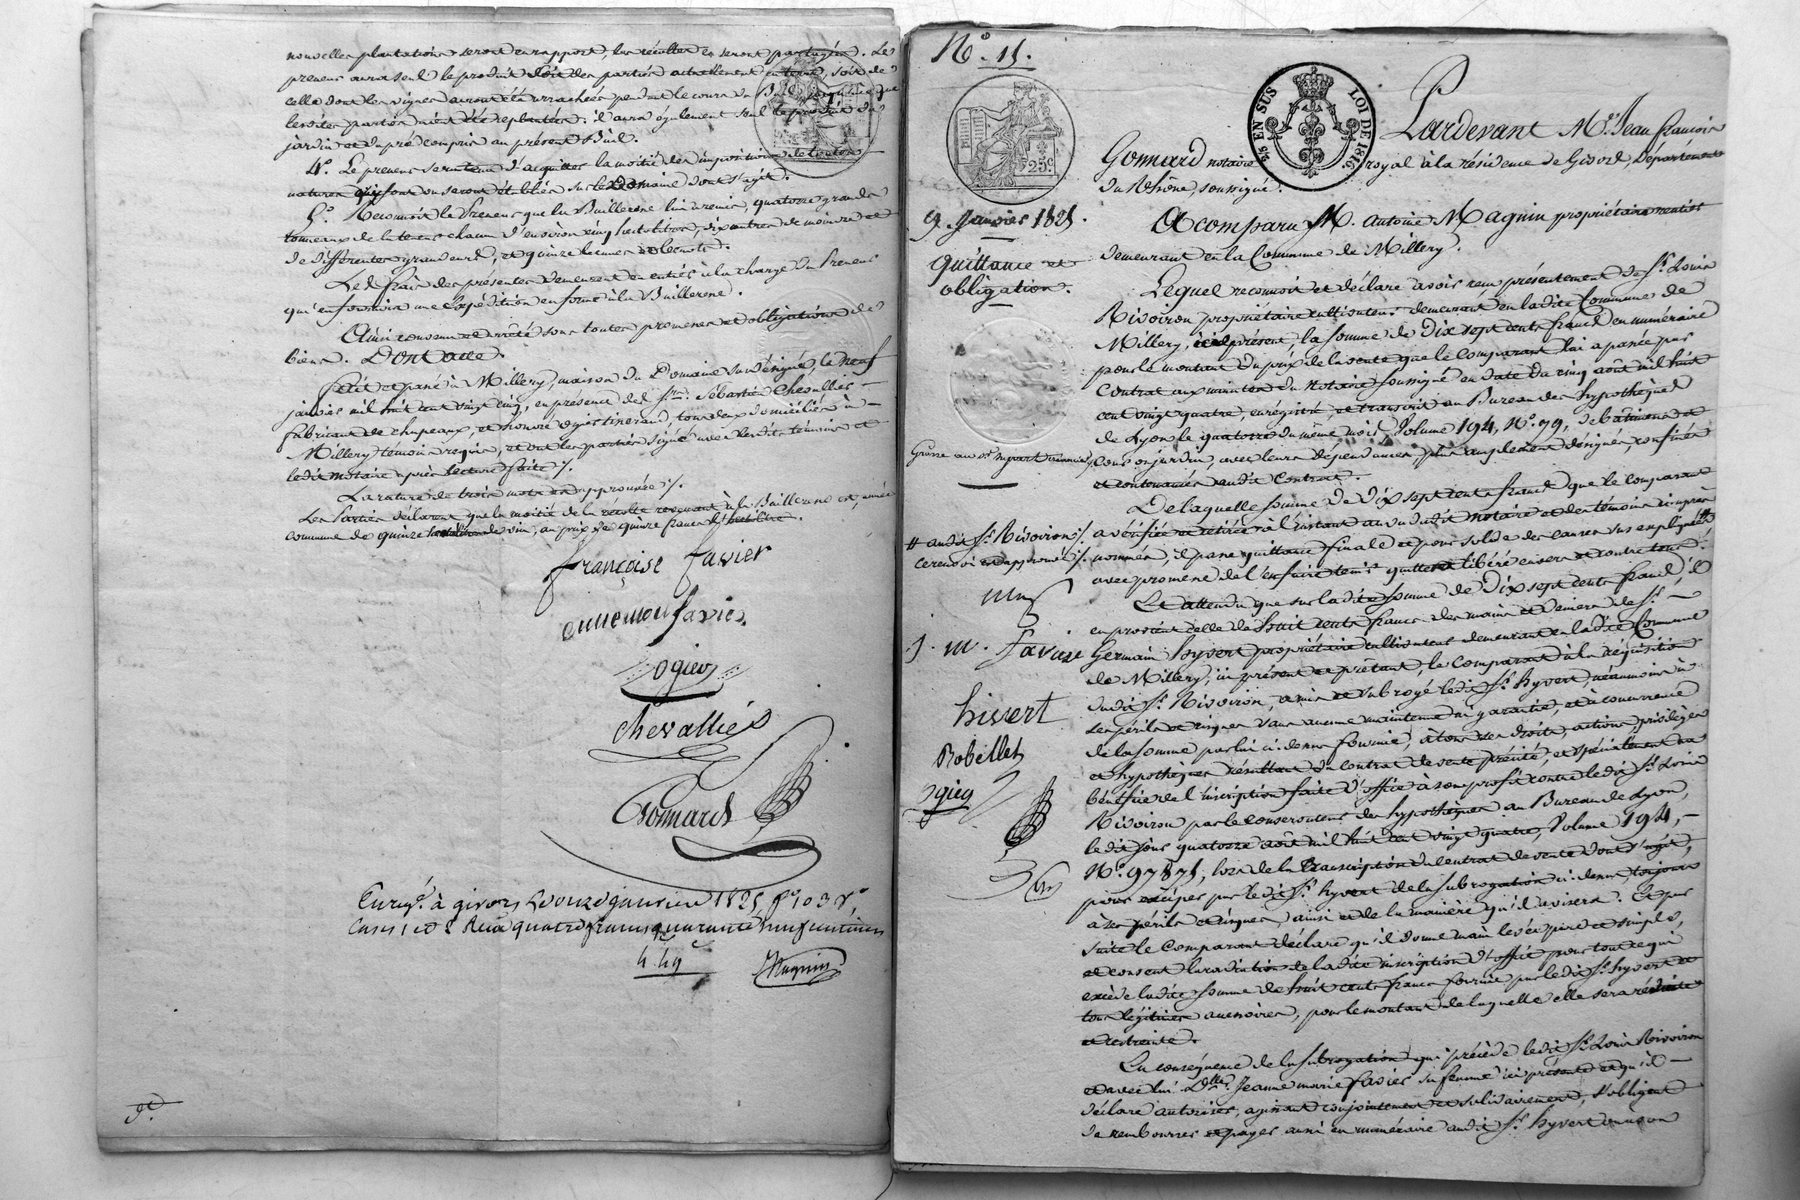 nouvelles plantations seront en rapport, les récoltes en seront partagées. Le
preneur aura seul le produit soit des parties actuellement en terre, soit de
celle dont les vignes auront été arrachées pendant le cours du Bail jusqu'à ce que
lesdites parties aient été replantées; il aura également seul le produit du
jardin et du pré compris au présent Bail.
4°. Le preneur sera tenu d'acquitter la moitié des impositions de toutes
natures qui sont ou seront établies sur le Domaine dont s'agit.
5°. Reconnoit le Preneur que la Bailleresse lui a remis, quatorze grands
tonneaux de la tenue chacun d'environ cinq hectolitres, dix autres de moindre et
de différentes grandeurs, et quinze bennes
Les frais des présentes demeurent en entier à la charge du Preneur
qui en fournira une expédition en forme à la Bailleresse.
Ainsi convenu et arrêté sous toutes promesses et obligations de
biens. Dont acte.
Fait et passé à Millery, maison du Domaine sus désigné, le neuf
janvier mil huit cent vingt cinq, en présence des Srs. Sébastien Chevallier
fabricant de chapeaux, et honoré ogier tisserand, tous deux domiciliés à
Millery témoins requis, et ont les parties signé avec lesdits témoins et
ledit notaire après lecture faite ./.
La rature de trois mots est approuvée ./.
Les Parties déclarent que la moitié de la récolte revenant à la Bailleresse est, année
commune de quinze hectolitres de vin, au prix de quinze francs l'hectolitre.
françoise favier
annemou favier
ogier
Chevallier
Gonnard
Enregé. à givors le onze janvier 1825, fo. 103 Vo.,
Cases 1 et 2 Reçu quatre francs quarante neuf centimes
4.49
Magnin
9e.
No. 11.
25c
25 EN SUS LOI DE 1816
9. Janvier 1825.
Quittance et
obligation.
Pardevant Me. Jean françois
Gonnard notaire royal à la résidence de Givors, Département
du Rhône, soussigné.
A comparu M. antoine Magnin propriétaire rentier
demeurant en la Commune de Millery.
Lequel reconnoit et déclare avoir reçu présentement de Sr. Louis
Rivoiron propriétaire cultivateur demeurant en ladite Commune de
Millery, ici présent, la somme de Dix sept cents francs en numéraire
pour le montant du prix de la vente que le Comparant lui a passée par
Contrat aux minutes du Notaire soussigné en date du cinq août mil huit
cent vingt quatre, enregistré, et transcrit au Bureau des hypothèques
de Lyon le quatorze du même mois, Volume 194, No. 79, de bâtiments et
Cour en jardin, avec leurs dépendances, plus amplement désignés, confinés
et contenancés audit Contrat.
De laquelle somme de Dix sept cents francs que le comparant
a vérifiée et retirée à l'instant au vu dudit notaire et des témoins ci après
nommés, il passe quittance finale et pour solde des causes sus expliquées #
avec promesse de l'en faire tenir quitte et libéré envers et contre tous.
Et attendu que sur ladite somme de Dix sept cents francs, il
en provient celle de huit cents francs des mains et deniers de Sr.
Germain hyvert propriétaire cultivateur demeurant en ladite Commune
de Millery, ici présent et prêtant, le Comparant à la réquisition
dudit Sr. Rivoiron, a mis et subrogé ledit Sr. hyvert, néanmoins à
ses périls et risques sans aucune maintenue ni garantie, et à concurrence
de la somme par lui ci-dessus fournie, à tous ses droits, actions, privilèges
et hypothèques résultant du contrat de vente précité, et spécialement au
bénéfice de l'inscription faite d'office à son profit contre ledit Sr. Louis
Rivoiron par le conservateur des hypothèques au Bureau de Lyon,
ledit jour quatorze août mil huit cent vingt quatre, Volume 194,
No. 97871, lors de la transcription du contrat de vente dont s'agit,
pour exciper par ledit Sr. hyvert de la subrogation ci-dessus, toujours
à ses périls et risques, ainsi et de la manière qu'il avisera. Et par
suite le Comparant déclare qu'il donne main levée pure et simple,
et consent la radiation de ladite inscription d'office pour tout ce qui
excède ladite somme de huit cents francs fournie par ledit Sr. hyvert et
tous légitimes accessoires, pour le montant de laquelle elle sera réduite
et restreinte.
En conséquence de la subrogation qui précède ledit Sr. Louis Rivoiron
et avec lui Dlle. Jeanne marie favier sa femme ici présente et qu'il
déclare autoriser, agissant conjointement et solidairement, s'obligent
de rembourser et payer aussi en numéraire audit Sr. hyvert en son
# audit Sr. Rivoiron ./.
ce renvoi est approuvé ./.
j. m. favier
hivert
Robellet
ogier